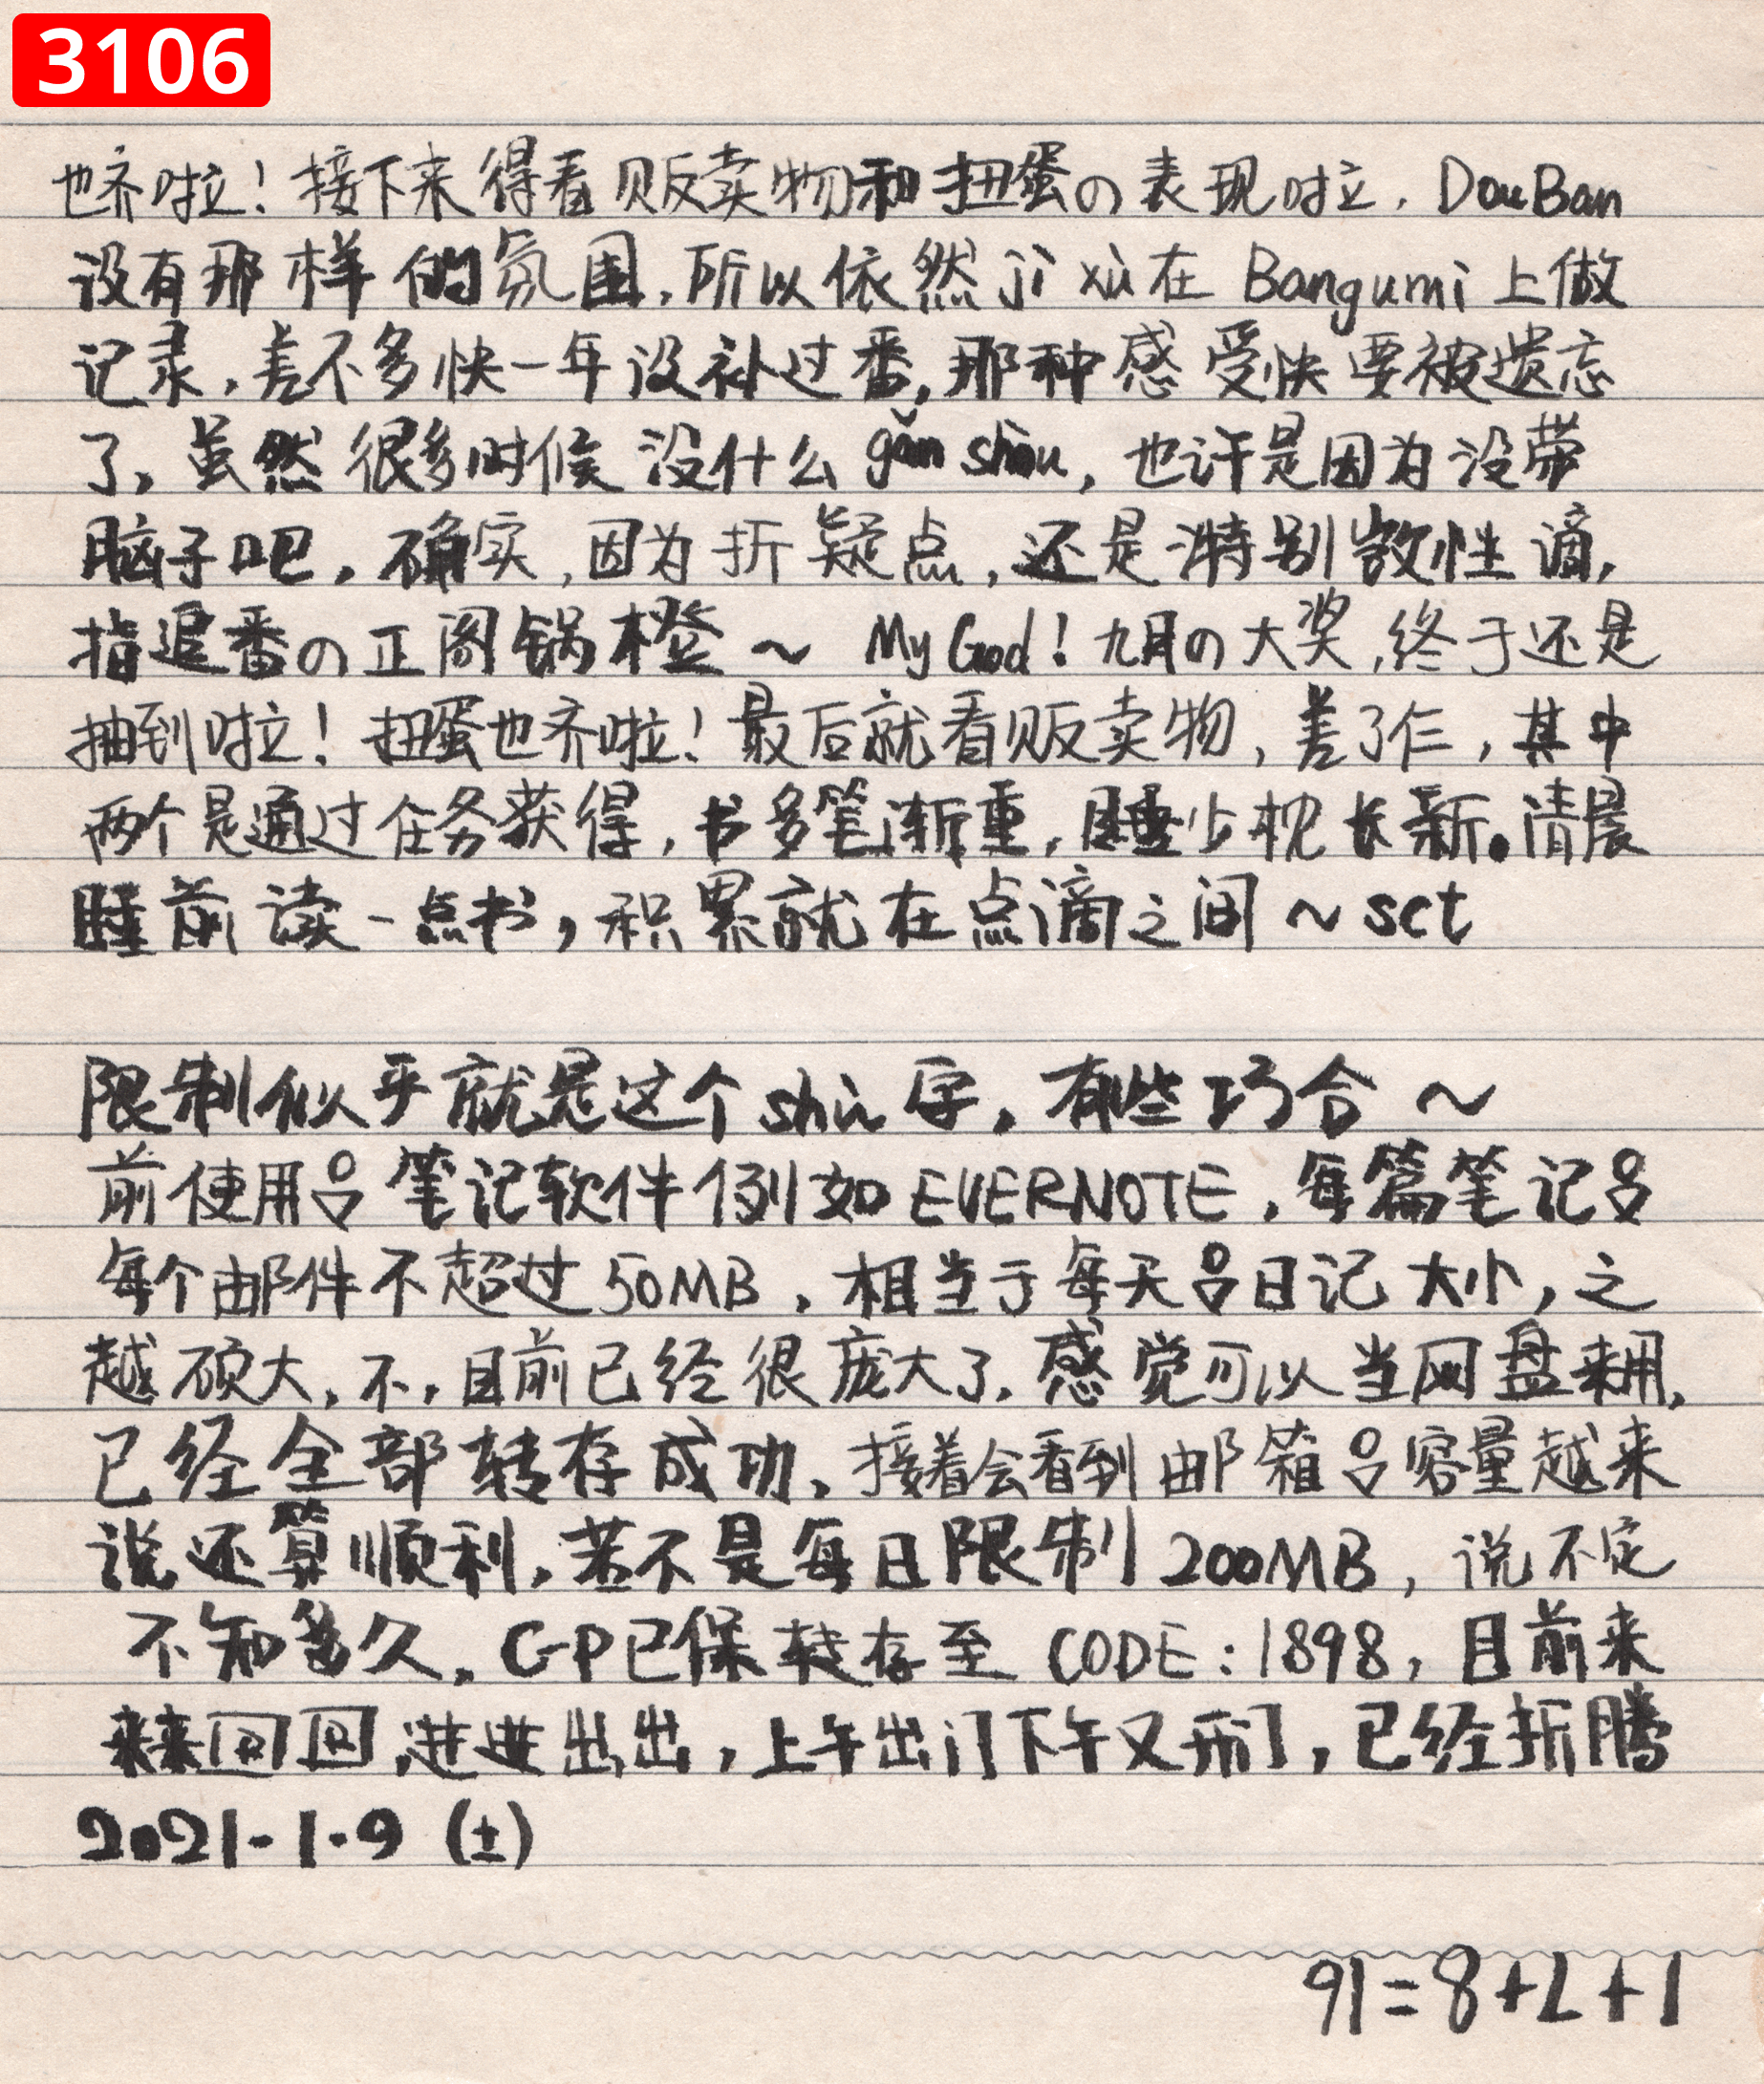 3106
也齐啦！接下来得看贩卖物和扭蛋の表现啦．DouBan
没有那样的氛围，所以依然jì xù在Bangumi上做
记录，差不多快一年没补过番，那种感受快要被遗忘
了，虽然很多时候没什么gǎn shòu，也许是因为没带
脑子吧，确实，因为折疑点，还是特别敏性滴，
指追番の正阁锅橙～ My God！九月の大奖，终于还是
抽到啦！扭蛋也齐啦！最后就看贩卖物，差了仨，其中
两个是通过任务获得，书多笔渐重，睡少枕长新。清晨
睡前读一点书，积累就在点滴之间～sct
限制似乎就是这个shù字，有些巧合～
前使用呂笔记软件例如EVERNOTE，每篇笔记呂
每个邮件不超过50MB，相当于每天呂日记大小，之
越硕大，不，目前已经很庞大了，感觉可以当网盘来用，
已经全部转存成功，接着会看到邮箱呂容量越来
说还算顺利，若不是每日限制200MB，说不定
不知多久，GP已保转存至CODE：1898，目前来
来来回回，进进出出，上午出门下午又开门，已经折腾
2021-1.9（土）
1+7+8=16